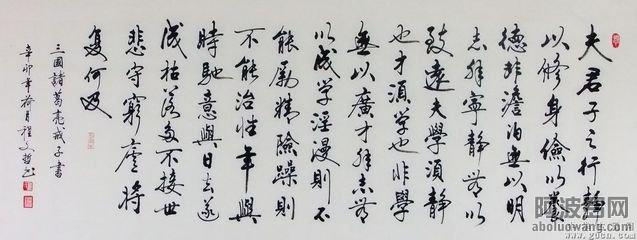 夫君子之行静
以修身儉以養
德非澹泊無以明
志非寧静無以
致遠夫學須静
也才須学也非學
無以廣才非志無
以成学淫漫則不
能勵精險躁則
不能治性年與
時馳意與日去遂
成枯落多不接世
悲守窮廬將
復何及
三國諸葛亮戒子書
辛卯年 月程文
阿波罗网
aboluowang.com
www.gucn.com